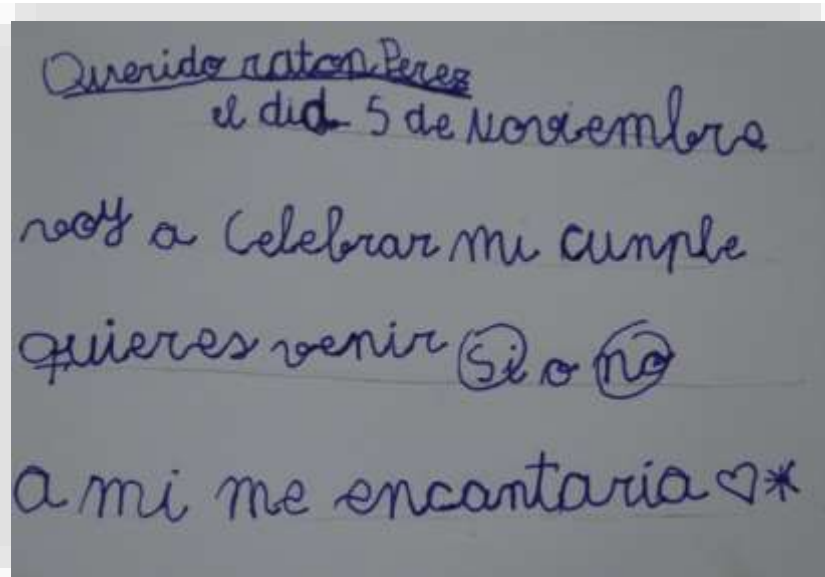 Querido raton Perez
el dia 5 de Noviembre
voy a Celebrar mi cunple
quieres venir Si o no
a mi me encantaria ♡*